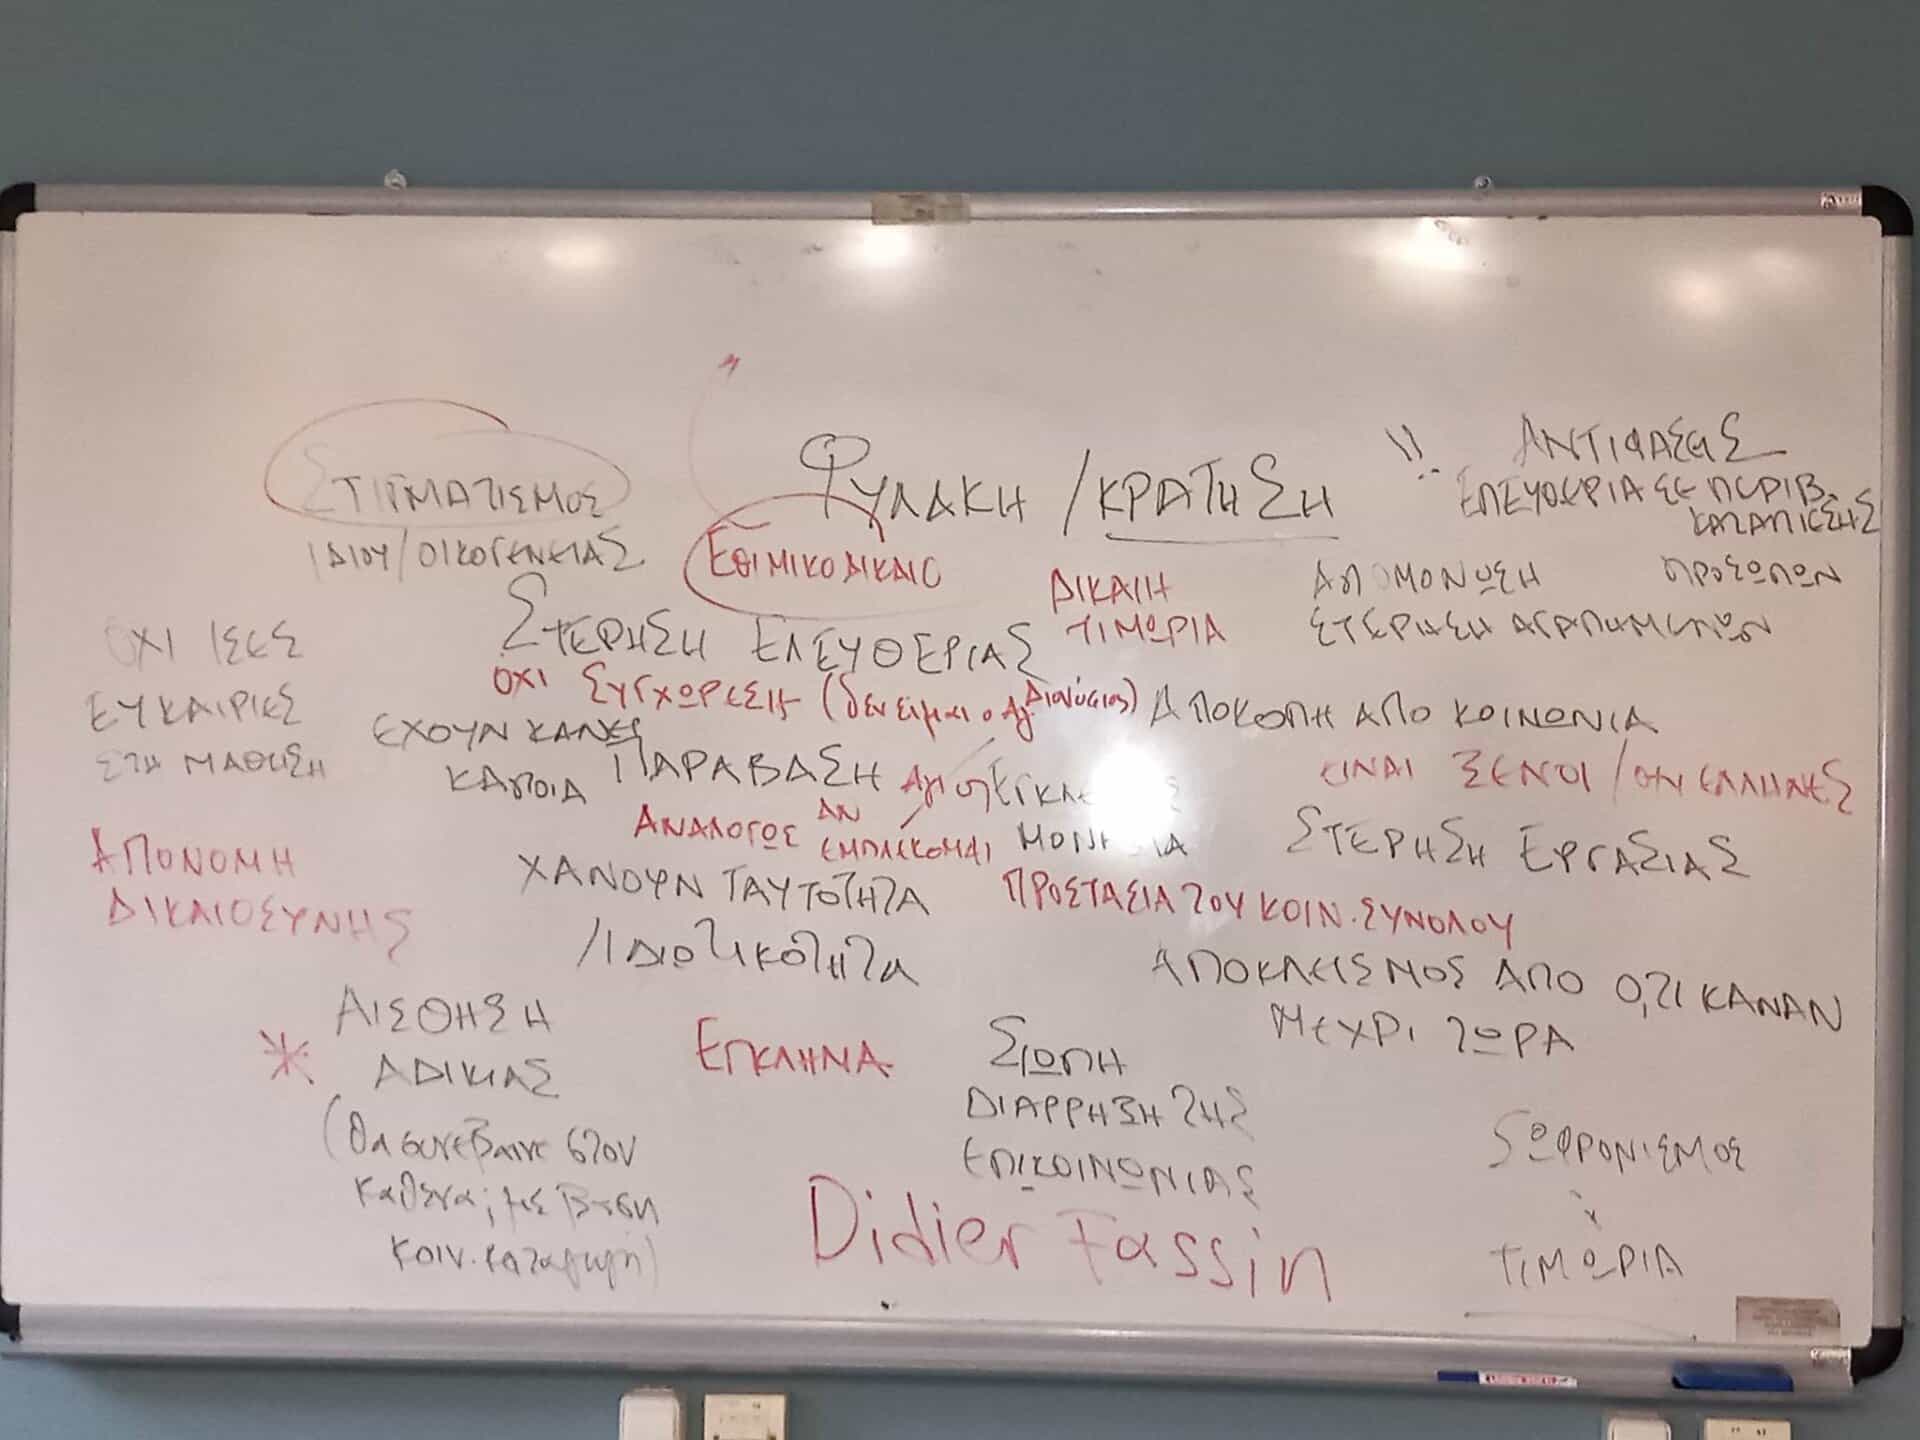 ΦΥΛΑΚΗ / ΚΡΑΤΗΣΗ
!!
ΑΝΤΙΦΑΣΕΙΣ
ΕΛΕΥΘΕΡΙΑ ΣΕ ΠΕΡΙΒ.
ΚΑΤΑΠΙΕΣΗΣ
ΣΤΙΓΜΑΤΙΣΜΟΣ
ΙΔΙΟΥ/ΟΙΚΟΓΕΝΕΙΑΣ
ΕΘΙΜΙΚΟ ΔΙΚΑΙΟ
ΔΙΚΑΙΗ
ΤΙΜΩΡΙΑ
ΑΠΟΜΟΝΩΣΗ
ΣΤΕΡΗΣΗ ΑΓΑΠΗΜΕΝΩΝ
ΠΡΟΣΩΠΩΝ
ΣΤΕΡΗΣΗ ΕΛΕΥΘΕΡΙΑΣ
ΟΧΙ ΙΣΕΣ
ΕΥΚΑΙΡΙΕΣ
ΣΤΗ ΜΑΘΗΣΗ
ΟΧΙ ΣΥΓΧΩΡΕΣΗ (δεν ειμαι ο Αγ. Διονύσιος)
ΑΠΟΚΟΠΗ ΑΠΟ ΚΟΙΝΩΝΙΑ
ΕΧΟΥΝ ΚΑΝΕΙ
ΚΑΠΟΙΑ ΠΑΡΑΒΑΣΗ
ΕΙΝΑΙ ΞΕΝΟΙ / ΟΧΙ ΕΛΛΗΝΕΣ
ΑΝΑΛΟΓΩΣ ΑΝ
ΕΜΠΛΕΚΟΜΑΙ
ΣΤΕΡΗΣΗ ΕΡΓΑΣΙΑΣ
ΑΠΟΝΟΜΗ
ΔΙΚΑΙΟΣΥΝΗΣ
ΧΑΝΟΥΝ ΤΑΥΤΟΤΗΤΑ
/ΙΔΙΩΤΙΚΟΤΗΤΑ
ΠΡΟΣΤΑΣΙΑ ΤΟΥ ΚΟΙΝ. ΣΥΝΟΛΟΥ
ΑΠΟΚΛΕΙΣΜΟΣ ΑΠΟ Ο,ΤΙ ΚΑΝΑΝ
ΜΕΧΡΙ ΤΩΡΑ
* ΑΙΣΘΗΣΗ
ΑΔΙΚΙΑΣ
(θα συνέβαινε στον
καθένα; με βάση
κοιν. καταγωγή)
ΕΓΚΛΗΜΑ
ΣΙΩΠΗ
ΔΙΑΡΡΗΞΗ ΤΗΣ
ΕΠΙΚΟΙΝΩΝΙΑΣ
Didier Fassin
ΣΩΦΡΟΝΙΣΜΟΣ
ΤΙΜΩΡΙΑ